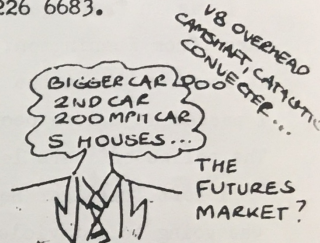 226 6683.
V8 OVERHEAD
CAMSHAFT, CATALYTIC
CONVECTER...
BIGGER CAR
2ND CAR
200 MPH CAR
5 HOUSES...
THE
FUTURES
MARKET?